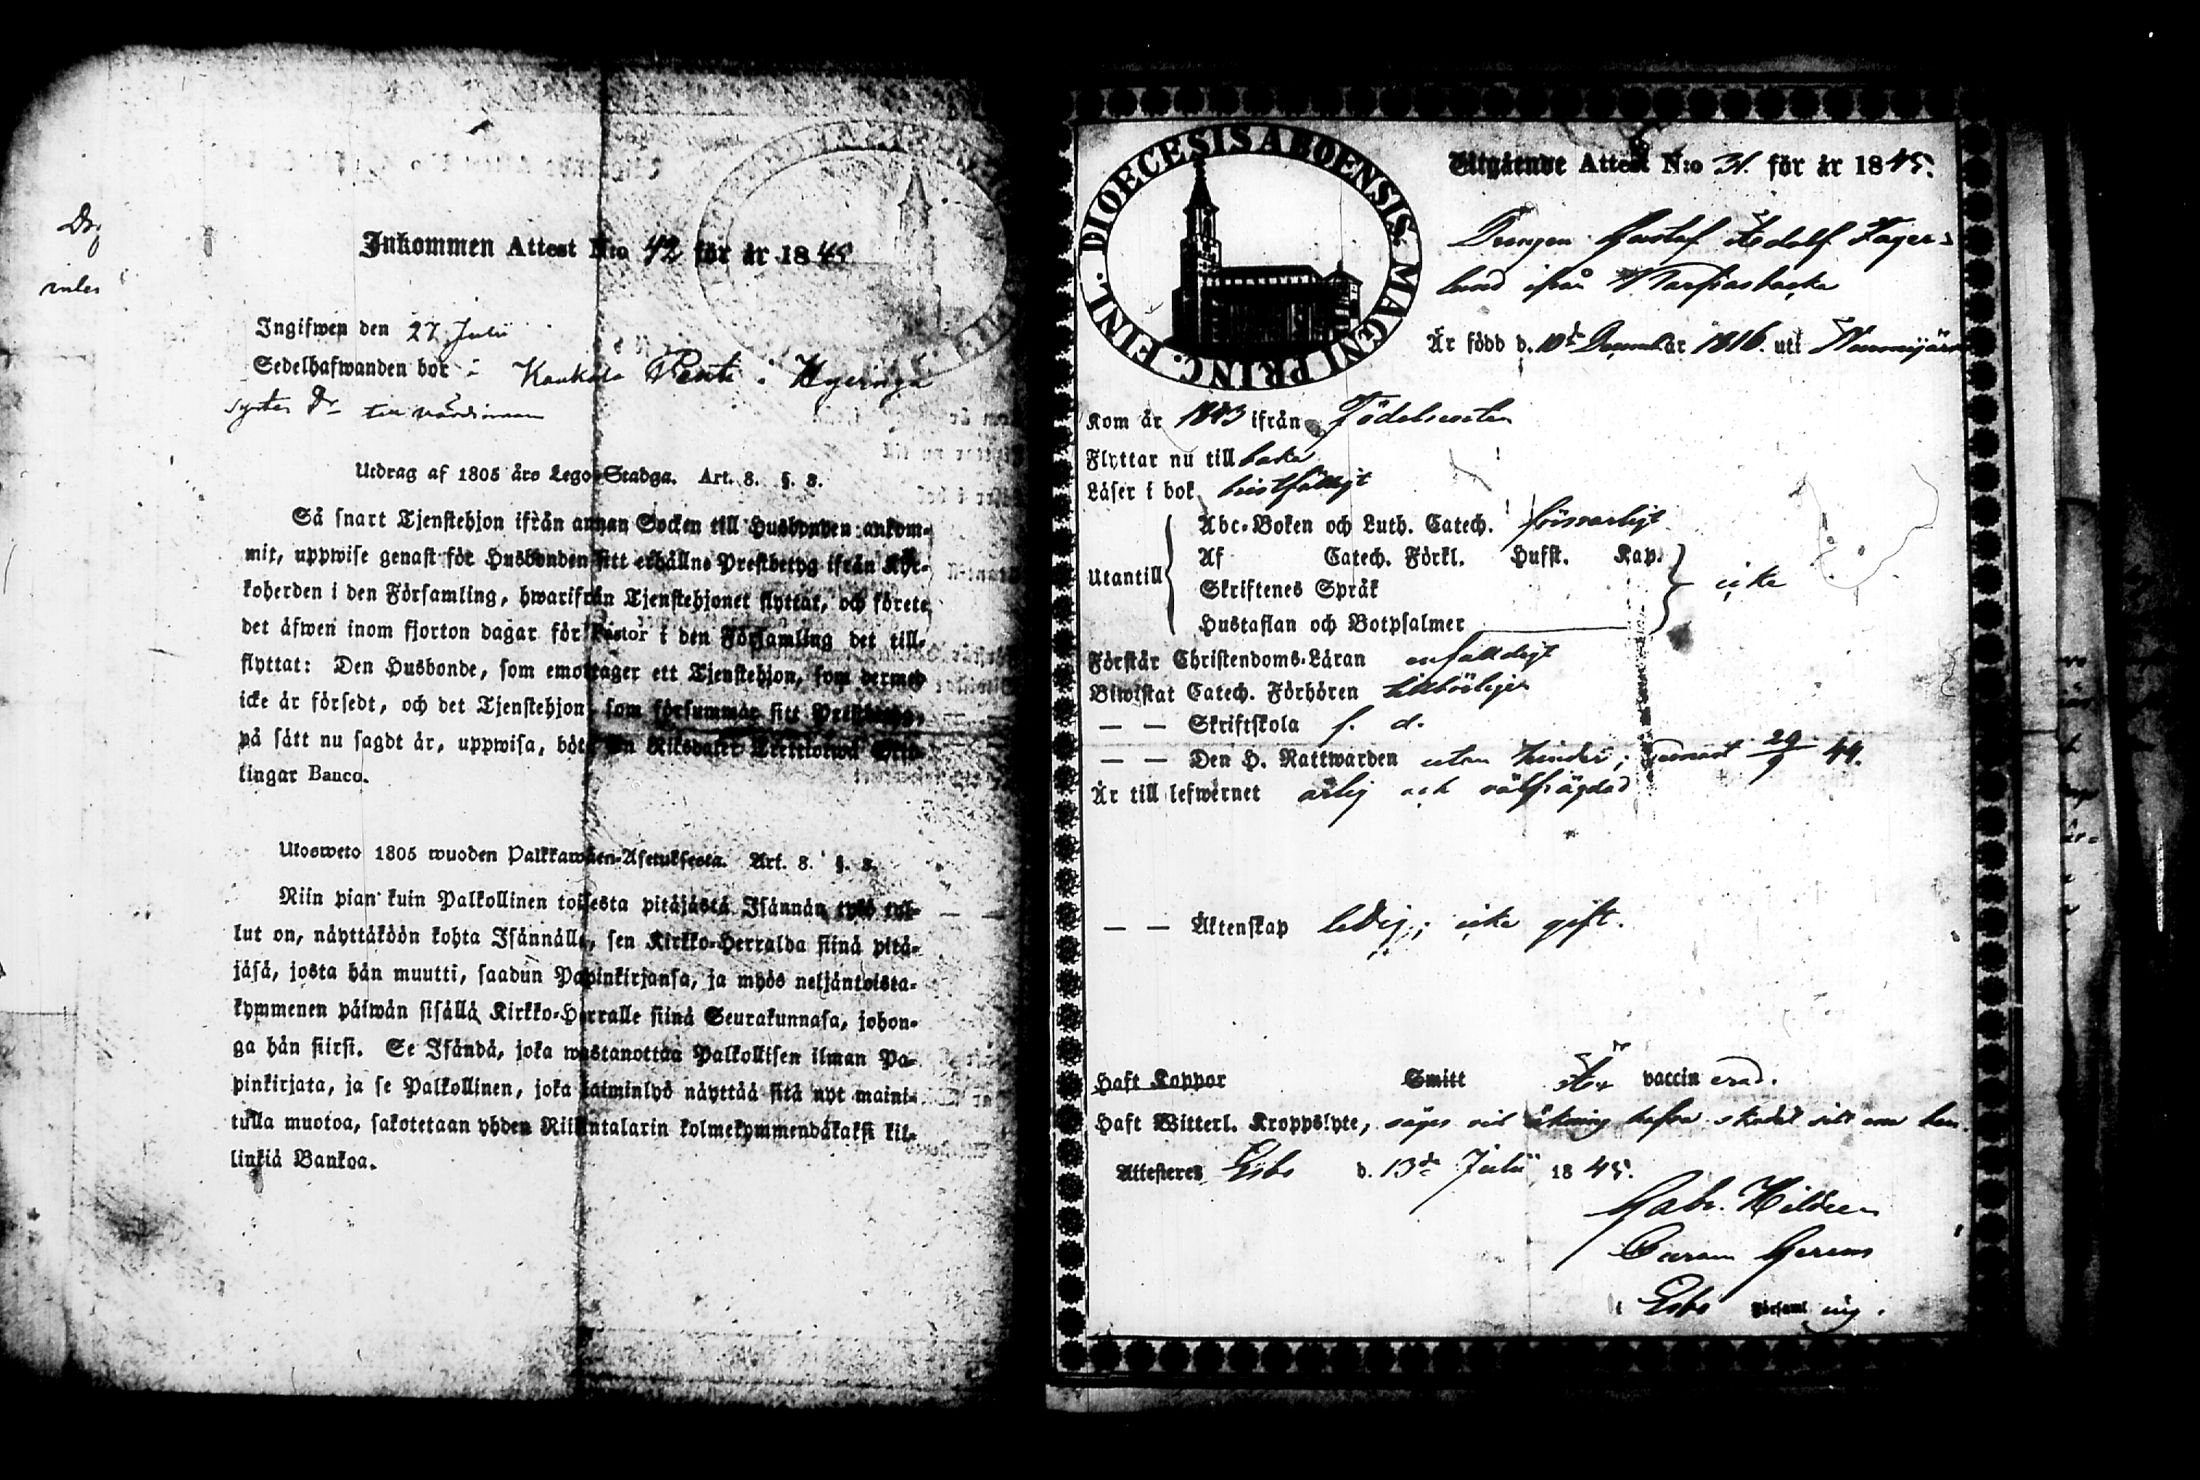 Inkommen Attest N:o 42 för år 1845
Ingifwen den 27 Juli
Sedelhafwanden bor i
Utdrag af 1805 års Lego-Stadga. Art. 8. §. 8.
Så snart Tjenstehjon ifrån annan Socken till Husbonden ankom-
mit, uppwise genast för Husbonden sitt erhållne Prestbetyg ifrån Kyr-
koherden i den Församling, hwarifrån Tjenstehjonet flyttat, och förete
det äfwen inom fjorton dagar för Pastor i den Församling det till-
flyttat: Den Husbonde, som emottager ett Tjenstehjon, som dermed
icke är försedt, och det Tjenstehjon, som försummar sitt Prestbetyg,
på sätt nu sagdt är, uppwisa, böte en Riksdaler Trettiotwå Skil-
lingar Banco.
Ulosweto 1805 wuoden Palkkawäen-Asetuksesta. Art. 8. §. 8.
Niin pian kuin Palkollinen toisesta pitäjästä Isännän tygö tul-
lut on, näyttäköön kohta Isännälle, sen Kirkko-Herralda siinä pitä-
jäsä, josta hän muutti, saadun Papinkirjansa, ja myös neljäntoista-
kymmenen päiwän sisällä Kirkko-Herralle siinä Seurakunnasa, johon-
ga hän siirsi. Se Isändä, joka wastanottaa Palkollisen ilman Pa-
pinkirjata, ja se Palkollinen, joka laiminlyö näyttää sitä nyt maini-
tulla muotoa, sakotetaan yhden Riikintalarin kolmekymmendäkaksi kil-
linkiä Bankoa.
DIOECESIS ABOENSIS. MAGNI PRINC. FINL.
Utgående Attest N:o 31. för år 1845.
Drengen Gustaf Adolf Fager-
lund ifrån
Är född d. 10de December 1816. uti Nummijärvi
Kom år 1843 ifrån Födelseorten
Flyttar nu till baka
Läser i bok
Abc-Boken och Luth. Catech. försvarligt
Af Catech. Förkl. Hufst. Kap.
Utantill
Skriftenes Språk
icke
Hustaflan och Botpsalmer
Förstår Christendoms-Läran enfaldigt
Biwistat Catech. Förhören behörligen
— — Skriftskola s. d.
— — Den H. Nattwarden utan hinder, senast 29/9 44.
Är till lefwernet ärlig och välfrägdad
— — Äktenskap ledig; icke gift.
Haft Koppor Smitt Är vaccinerad.
Haft Witterl. Kroppslyte, säges vid
Attesteres Esbo d. 13de Julii 1845.
Gabr. Hildeen
Curam Gerens
i Esbo Församl ing.